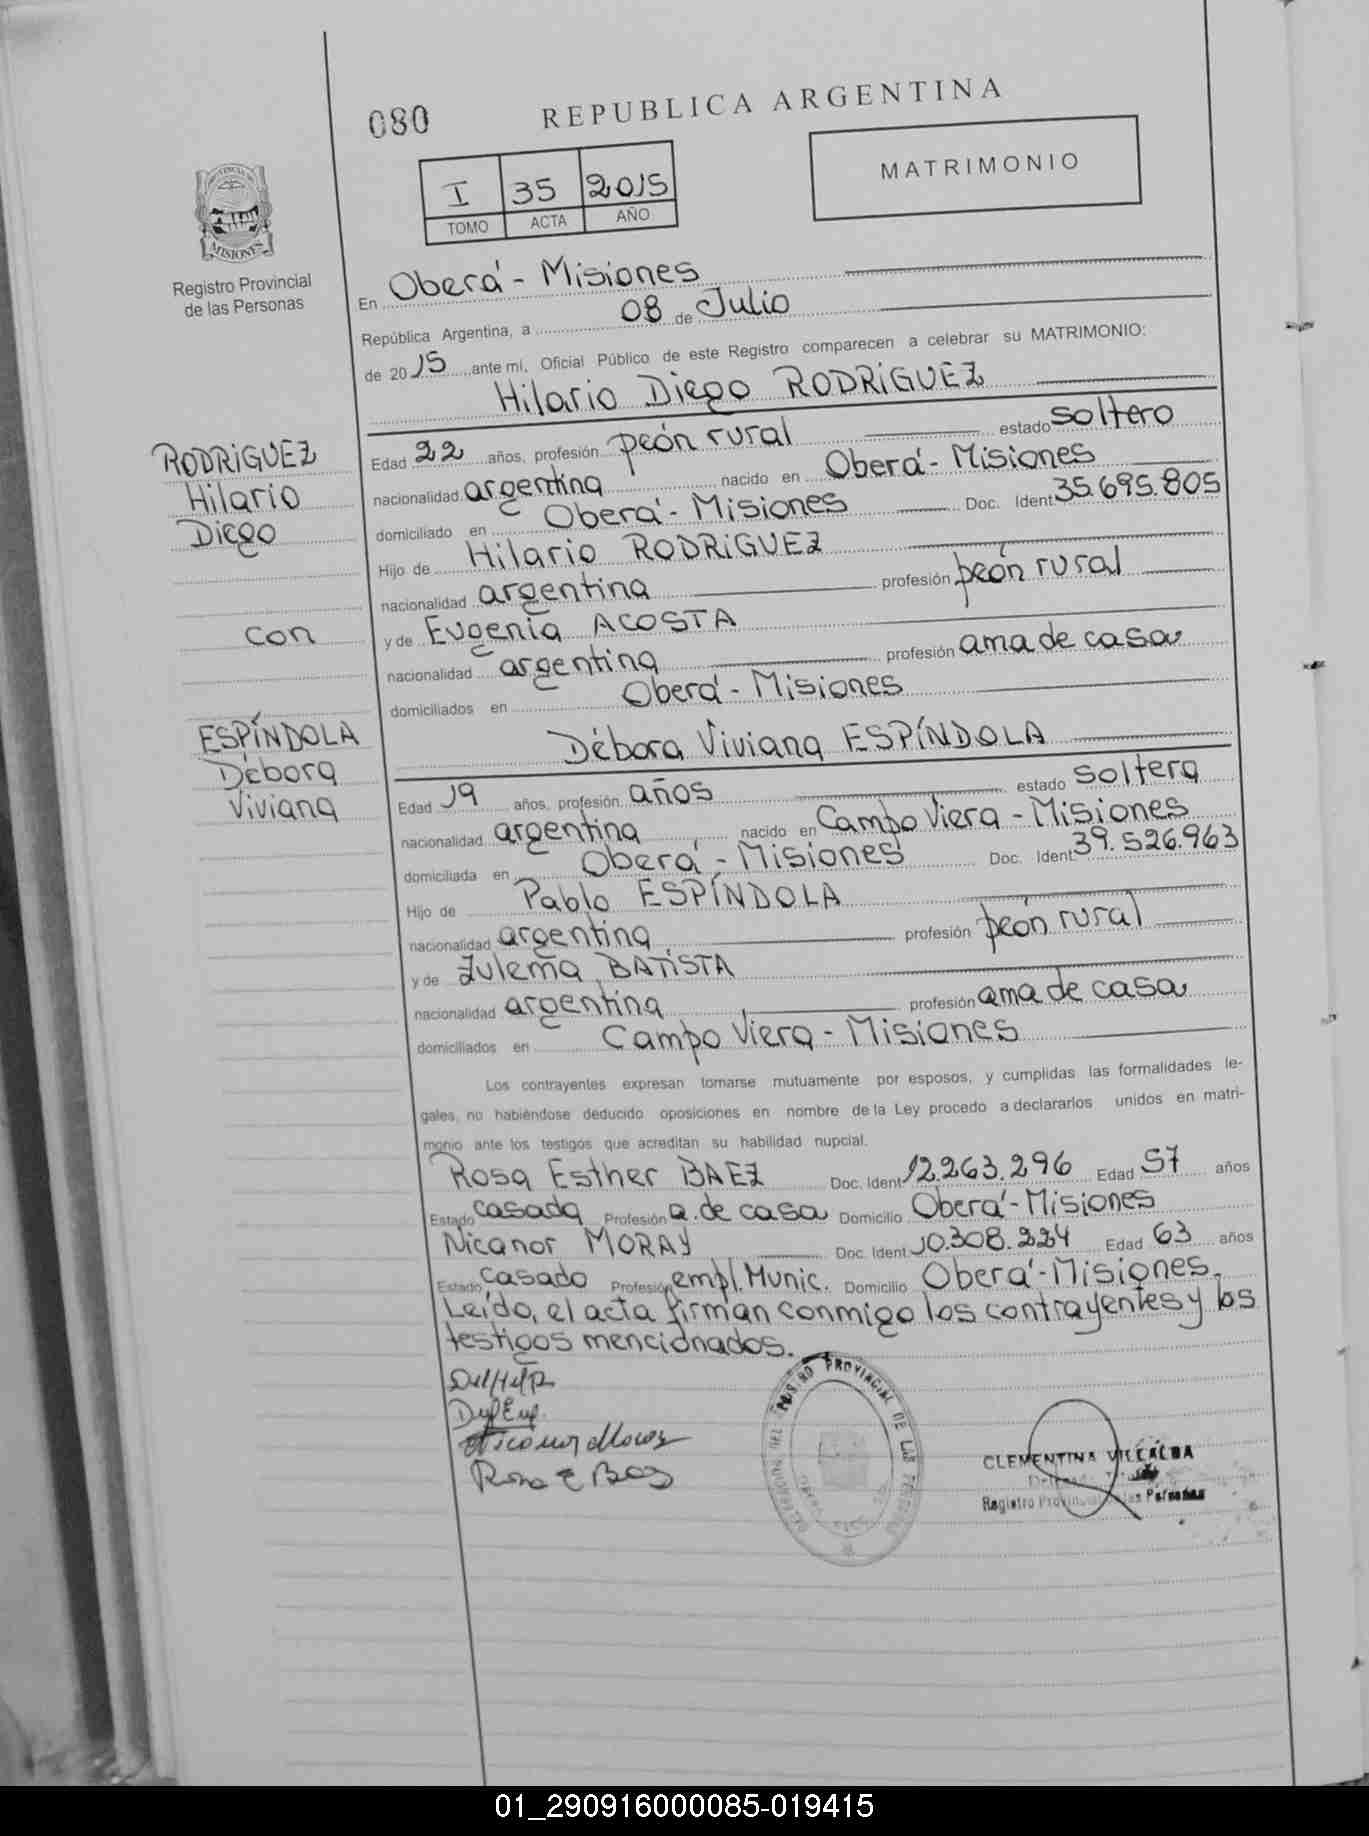 080 REPUBLICA ARGENTINA
MATRIMONIO
I 35 2015
TOMO ACTA AÑO
PROVINCIA DE
MISIONES
Registro Provincial
de las Personas
En Oberá - Misiones
República Argentina, a 08 de Julio
de 2015 ante mí, Oficial Público de este Registro comparecen a celebrar su MATRIMONIO:
Hilario Diego RODRíGUEZ
RODRíGUEZ
Hilario
Diego
con
ESPÍNDOLA
Débora
Viviana
Edad 22 años, profesión peón rural estado soltero
nacionalidad argentina nacido en Oberá - Misiones
domiciliado en Oberá - Misiones Doc. Ident 35.695.805
Hijo de Hilario RODRíGUEZ
nacionalidad argentina profesión peón rural
y de Eugenia ACOSTA
nacionalidad argentina profesión ama de casa
domiciliados en Oberá - Misiones
Débora Viviana ESPÍNDOLA
Edad 19 años, profesión años estado soltera
nacionalidad argentina nacido en Campo Viera - Misiones
domiciliada en Oberá - Misiones Doc. Ident 39.526.963
Hijo de Pablo ESPÍNDOLA
nacionalidad argentina profesión peón rural
y de Zulema BATISTA
nacionalidad argentina profesión ama de casa
domiciliados en Campo Viera - Misiones
Los contrayentes expresan tomarse mutuamente por esposos, y cumplidas las formalidades le-
gales, no habiéndose deducido oposiciones en nombre de la Ley procedo a declararlos unidos en matri-
monio ante los testigos que acreditan su habilidad nupcial.
Rosa Esther BAEZ Doc. Ident 12.263.296 Edad 57 años
Estado casada Profesión a. de casa Domicilio Oberá - Misiones
Nicanor MORAY Doc. Ident 10.308.224 Edad 63 años
Estado casado Profesión empl. Munic. Domicilio Oberá - Misiones.
Leído, el acta firman conmigo los contrayentes y los
testigos mencionados.
Nicanor Moray
Rosa E Baez
REGISTRO PROVINCIAL DE LAS PERSONAS
CLEMENTINA VILLALBA
Registro Provincial de las Personas
01_290916000085-019415